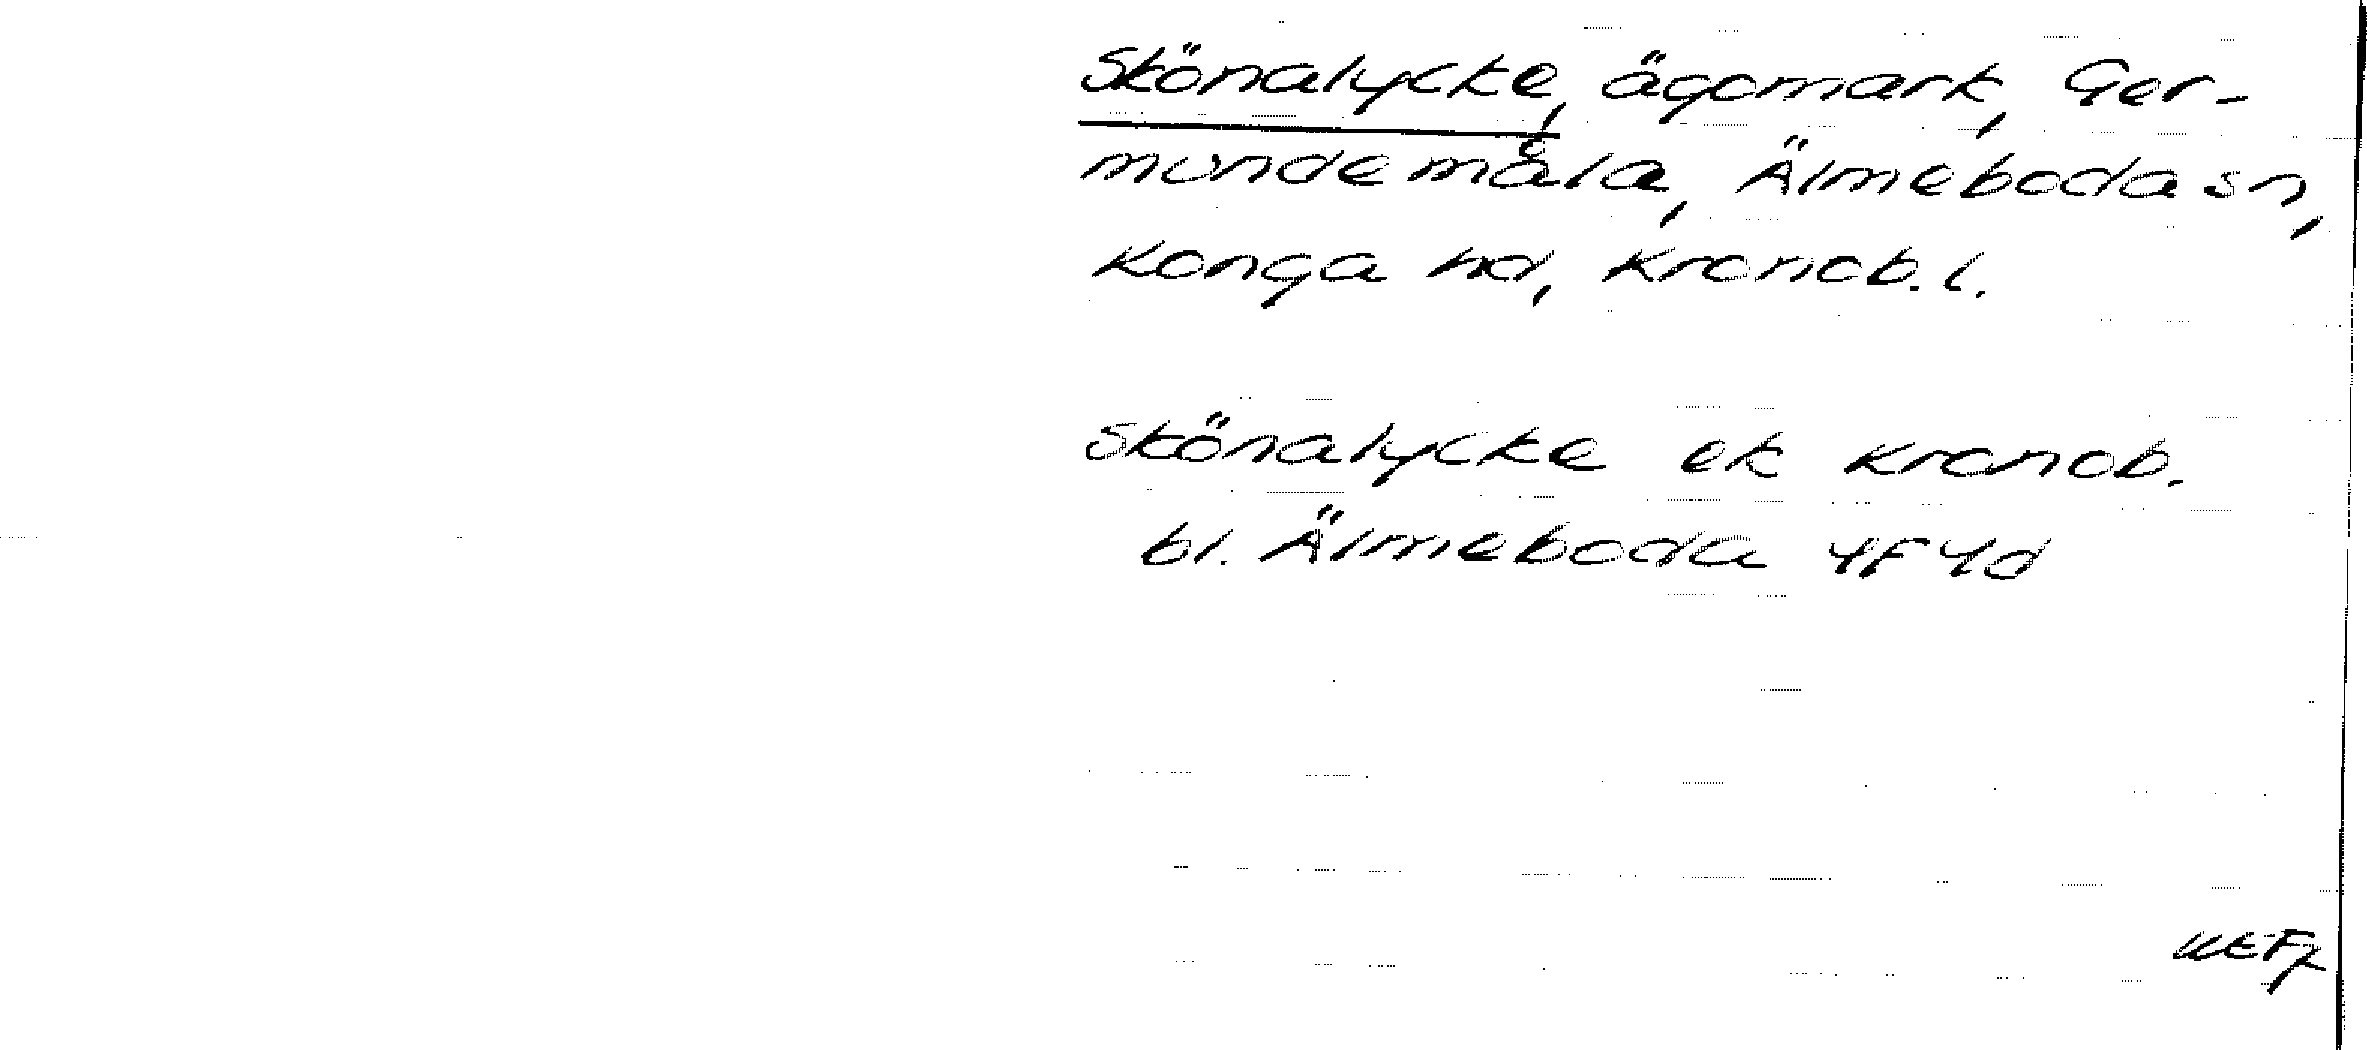 Skönalycke, ägomark, Ger-
mundemåla, Älmeboda sn,
Konga hd, Kronob. l.
Skönalycke ek Kronob.
bl. Älmeboda 4F4d